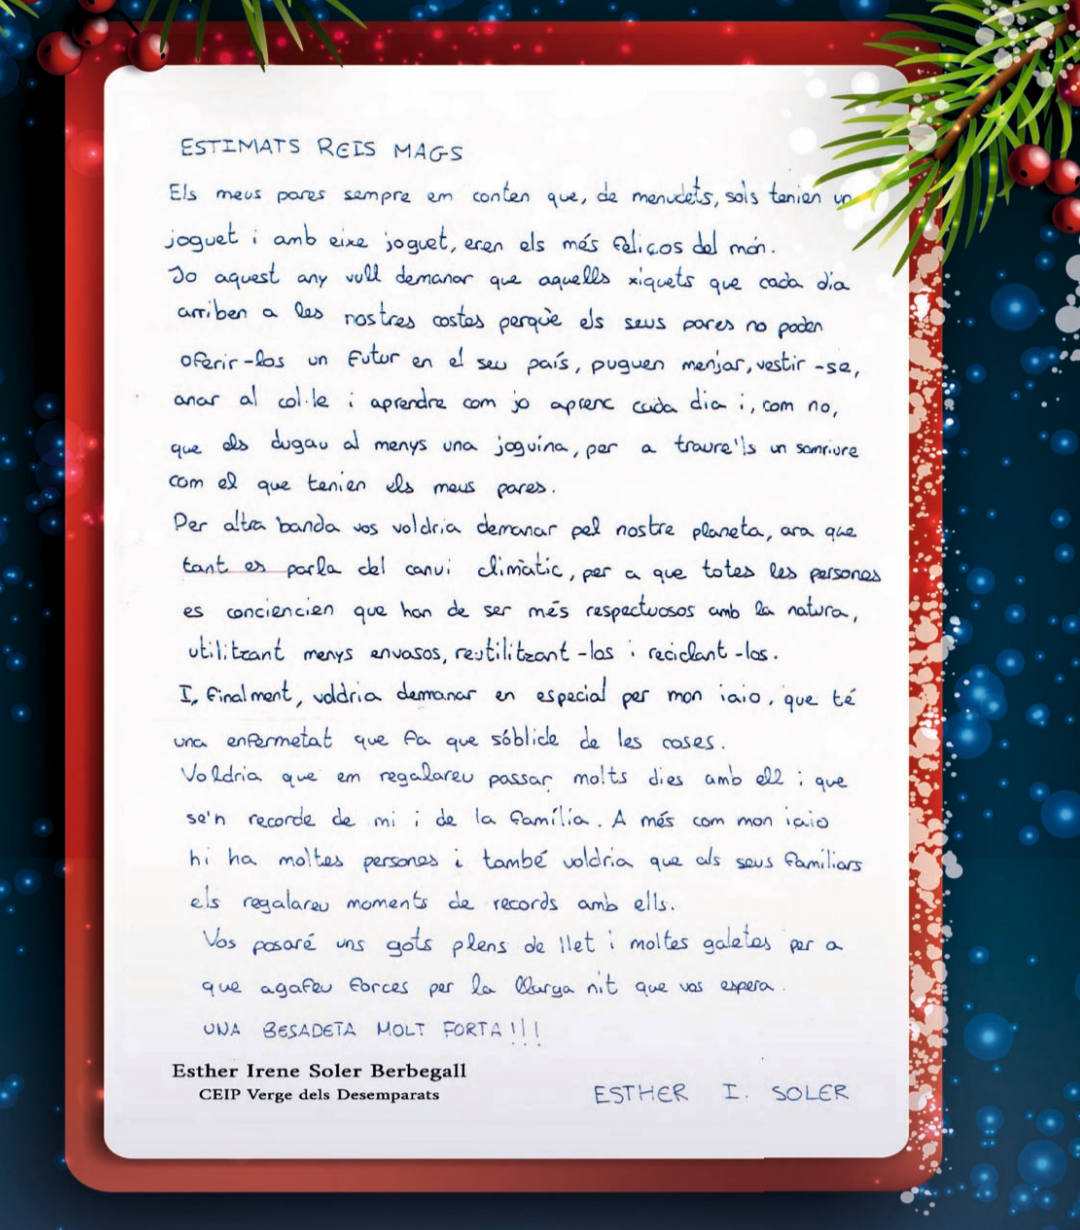 ESTIMATS REIS MAGS
Els meus pares sempre em conten que, de menudets, sols tenien un
joguet i amb eixe joguet, eren els més feliços del món.
Jo aquest any vull demanar que aquells xiquets que cada dia
arriben a les nostres costes perquè els seus pares no poden
oferir-los un futur en el seu país, puguen menjar, vestir-se,
anar al col·le i aprendre com jo aprenc cada dia i, com no,
que els dugau al menys una joguina, per a traure'ls un somriure
com el que tenien els meus pares.
Per altra banda vos voldria demanar pel nostre planeta, ara que
tant es parla del canvi climàtic, per a que totes les persones
es conciencien que han de ser més respectuosos amb la natura,
utilitzant menys envasos, reutilitzant-los i reciclant-los.
I, finalment, voldria demanar en especial per mon iaio, que té
una enfermetat que fa que s'oblide de les coses.
Voldria que em regalareu passar molts dies amb ell i que
se'n recorde de mi i de la família. A més com mon iaio
hi ha moltes persones i també voldria que als seus familiars
els regalareu moments de records amb ells.
Vos posaré uns gots plens de llet i moltes galetes per a
que agafeu forces per la llarga nit que vos espera.
UNA BESADETA MOLT FORTA!!!
Esther Irene Soler Berbegall
CEIP Verge dels Desemparats
ESTHER I. SOLER